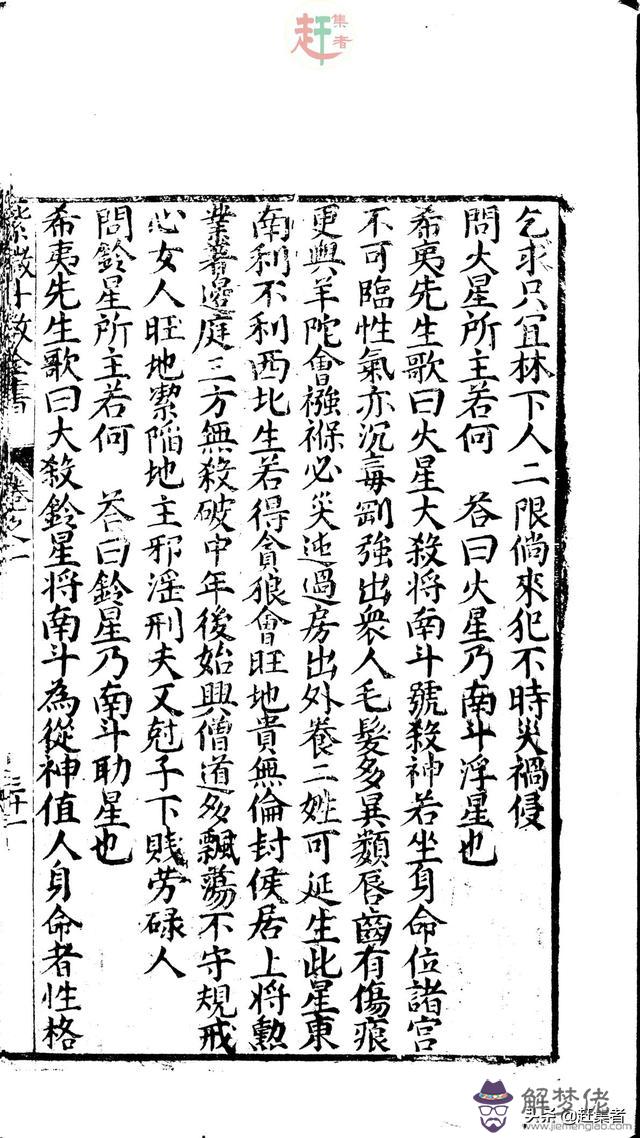 赶集者
乞求只宜林下人二限倘來犯不時災禍侵
問火星所主若何　答曰火星乃南斗浮星也
希夷先生歌曰火星大殺將南斗號殺神若坐身命位諸宮
不可臨性氣亦沉毒剛強出衆人毛髮多異類唇齒有傷痕
更與羊陀會襁褓必災迍過房出外養二姓可延生此星東
南利不利西北生若得貪狼會旺地貴無倫封侯居上將勲
業著邊庭三方無殺破中年後始興僧道多飄蕩不守規戒
心女人旺地潔陷地主邪淫刑夫又尅子下賤勞碌人
問鈴星所主若何　答曰鈴星乃南斗助星也
希夷先生歌曰大殺鈴星将南斗為從神值人身命者性格
紫微斗数全書　卷之一　三十一
解梦佬
头条@赶集者
www.jiemenglab.com